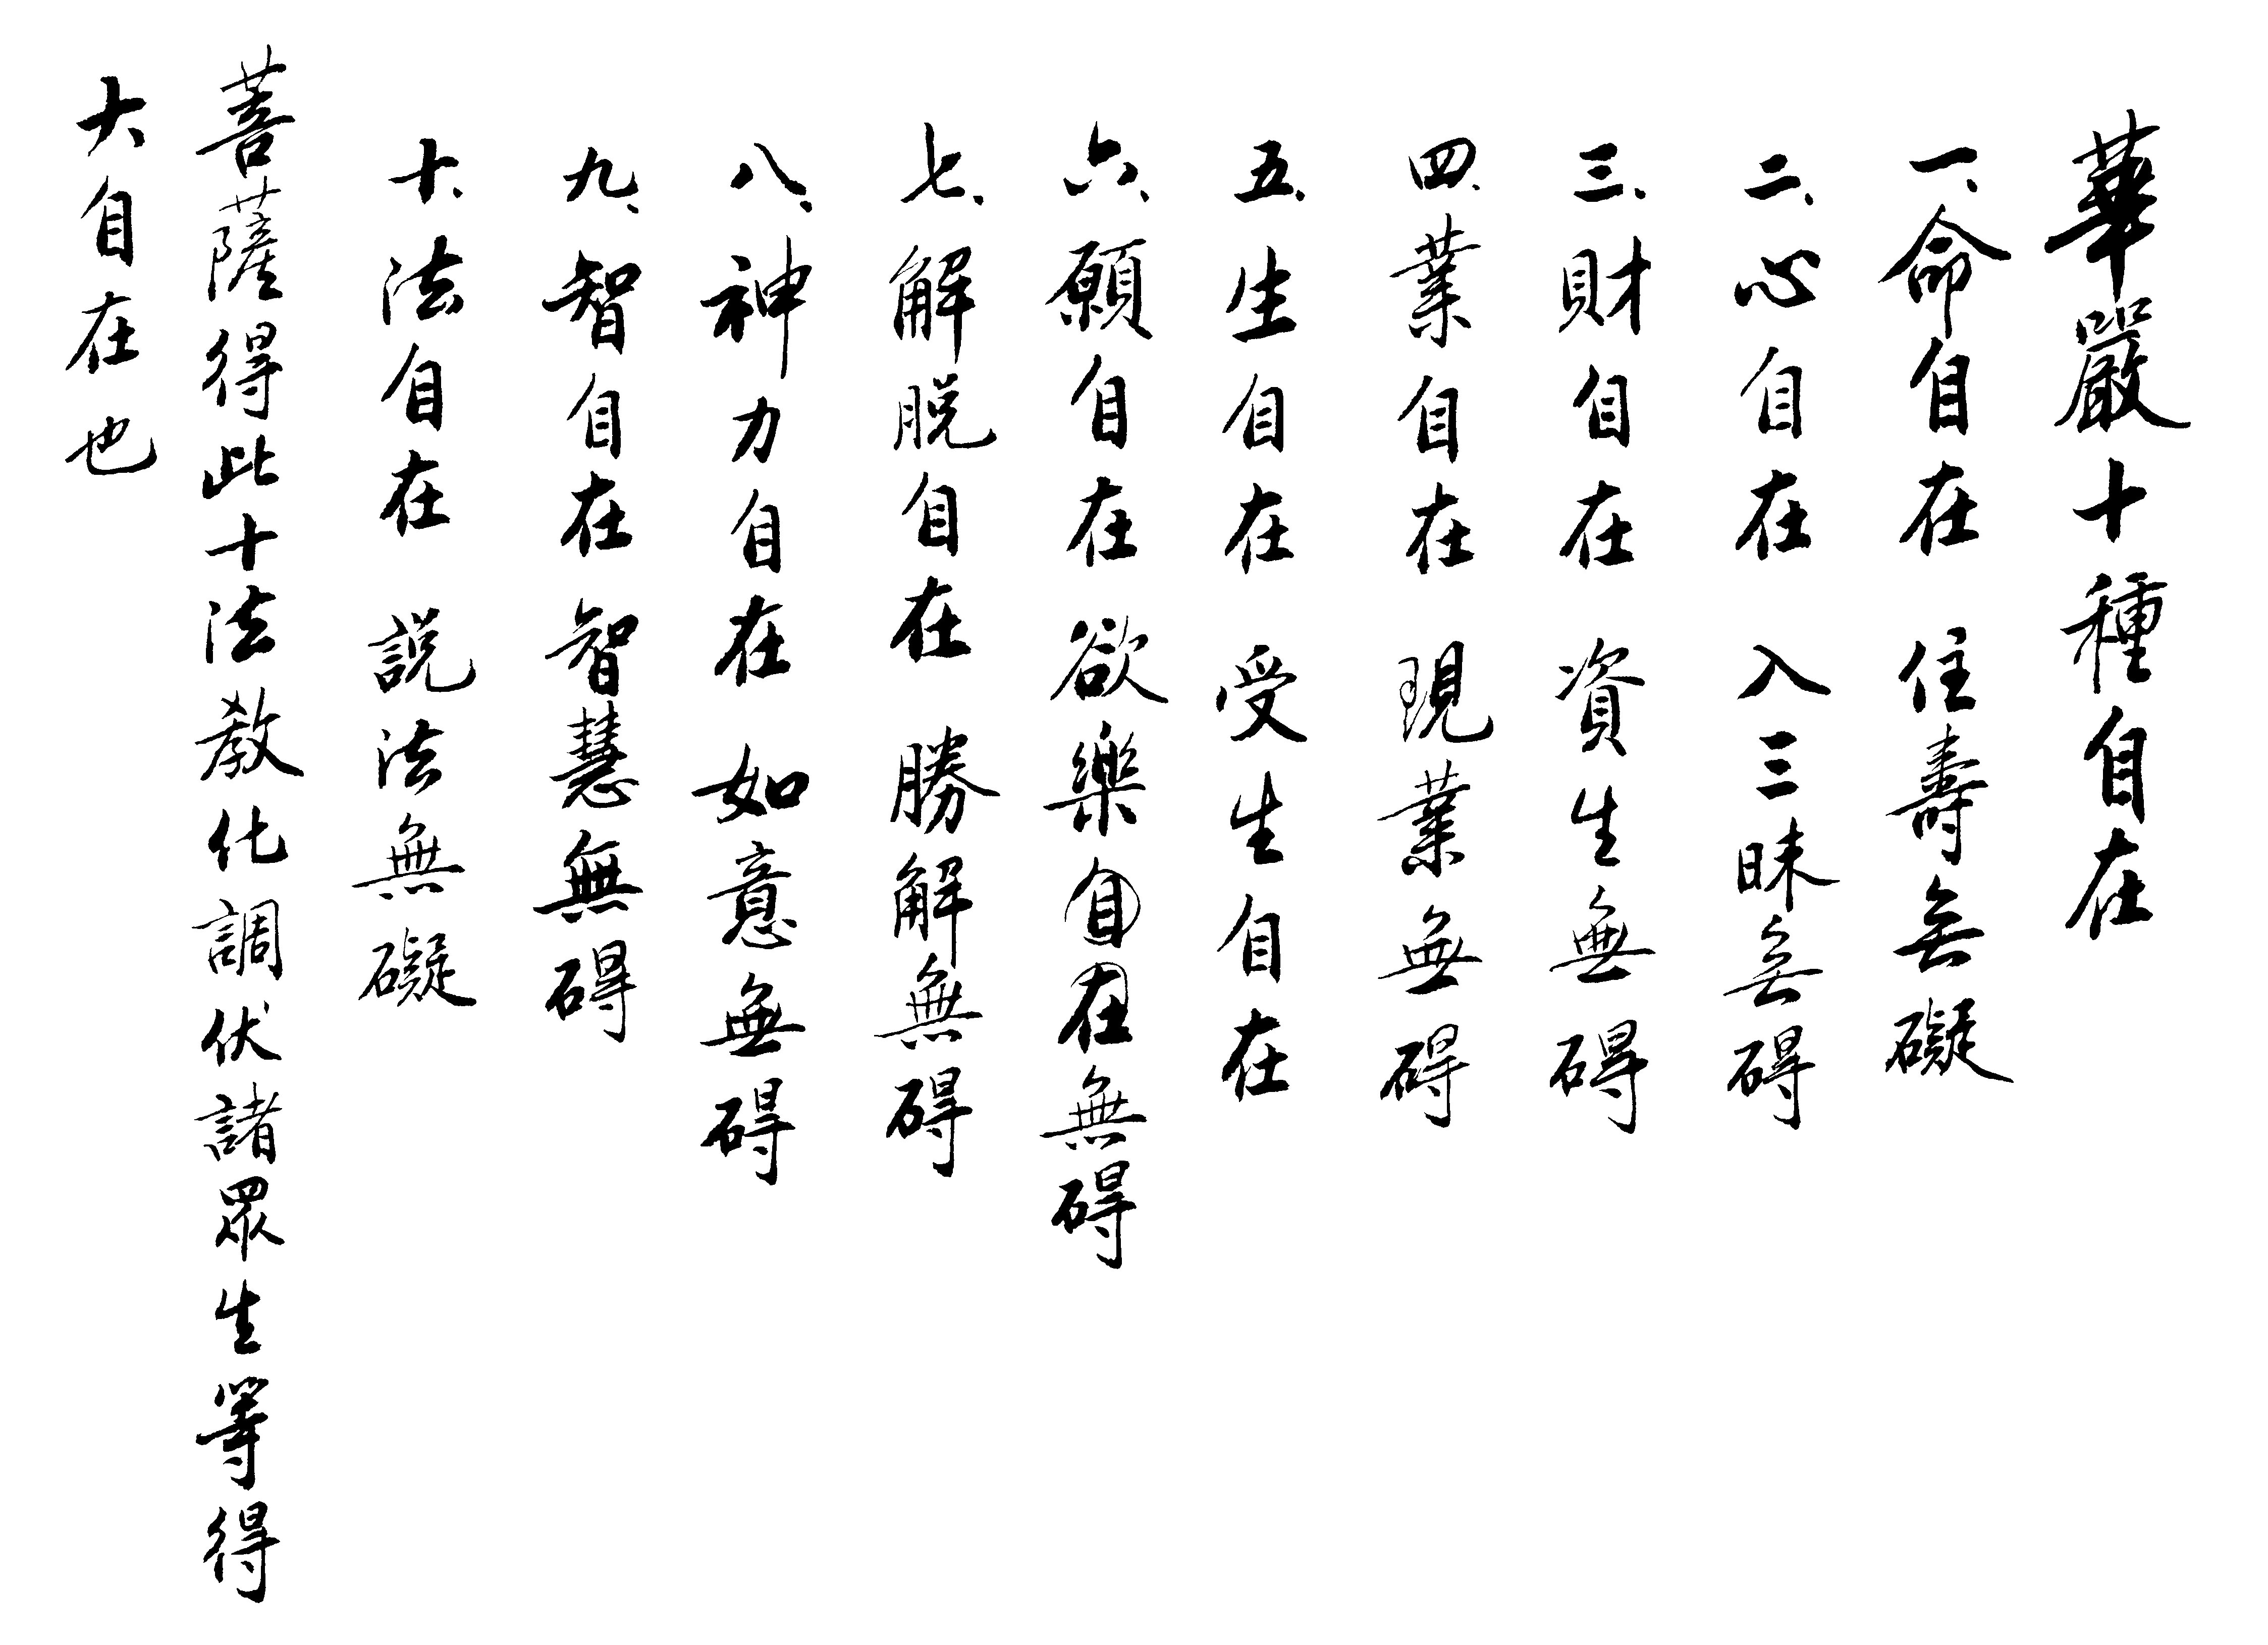 華嚴十種自在
一、命自在 住壽无礙
二、心自在 入三昧无碍
三、財自在 資生無碍
四、業自在 現業無碍
五、生自在 受生自在
六、願自在 欲樂自在無碍
七、解脱自在 勝解無碍
八、神力自在 如意無碍
九、智自在 智慧無碍
十、法自在 説法無礙
菩薩得此十法教化調伏諸眾生等得
大自在也